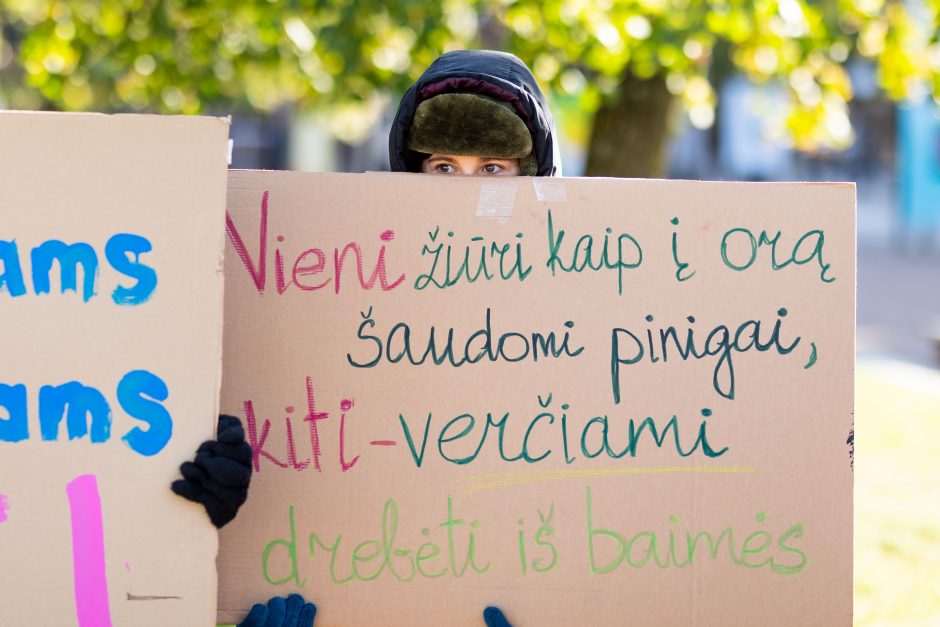 ams
ams
Vieni žiūri kaip į orą
šaudomi pinigai,
kiti - verčiami
drebėti iš baimės